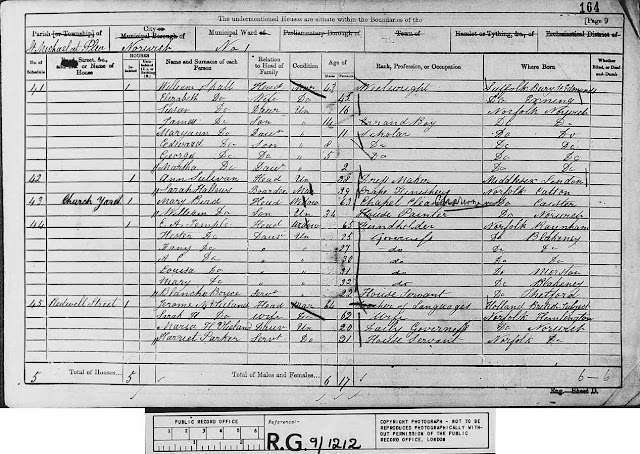 164
The undermentioned Houses are situate within the Boundaries of the
[Page 9
Parish [or Township] of
City or Municipal Borough of
Municipal Ward of
Parliamentary Borough of
Town of
Hamlet or Tything, &c., of
Ecclesiastical District of
St Michael at Plea
Norwich
No 1
No. of Schedule
Road, Street, &c., and No. or Name of House
HOUSES
Name and Surname of each Person
Relation to Head of Family
Condition
Age of
Rank, Profession, or Occupation
Where Born
Whether Blind, or Deaf-and-Dumb
41 1 William Head Mar 43 Suffolk Bury St Edmunds
Elizabeth Do Wife Do 43 Do Exning
Susan Do Daur Un 16 Norfolk Norwich
James Do Son 14 Errand Boy Do Do
Maryann Do Daur 11 Scholar Do Do
Edward Do Son 8 Do Do Do
George Do Do 5 Do Do Do
Martha Do Daur 2
42 1 Ann Sullivan Head Un 28 Dress Maker Middlesex London
Sarah Boarder 29 Norfolk Catton
43 Church Yard 1 Mary Head Widow 63 Chapel Do
William Do Son Un 34 House Painter Do Norwich
44 1 E. A. Temple Head Widow 65 Fundholder Norfolk Raynham
Hester Do Daur Un 25 Governess Do Blakeney
Fany Do 27 do Do
A C Do 30 do Do
Louisa Do 31 do Do
Mary Do 32 do Do Blakeney
Blanche Boyce Servt 22 House Servant Do Thetford
45 Redwell Street 1 Head Mar Teacher of Languages Holland British Subject
Sarah H Do Wife Do 62 Wife Norfolk
Maria H Un 20 Daily Governess Do Norwich
Harriet Parker Servt Do 21 House Servant Norfolk Do
5 Total of Houses... 5 Total of Males and Females... 6 17
6-6
Eng.—Sheet D.
PUBLIC RECORD OFFICE
1 2
Reference:-
R.G. 9/1212
COPYRIGHT PHOTOGRAPH - NOT TO BE
REPRODUCED PHOTOGRAPHICALLY WITH-
OUT PERMISSION OF THE PUBLIC
RECORD OFFICE, LONDON